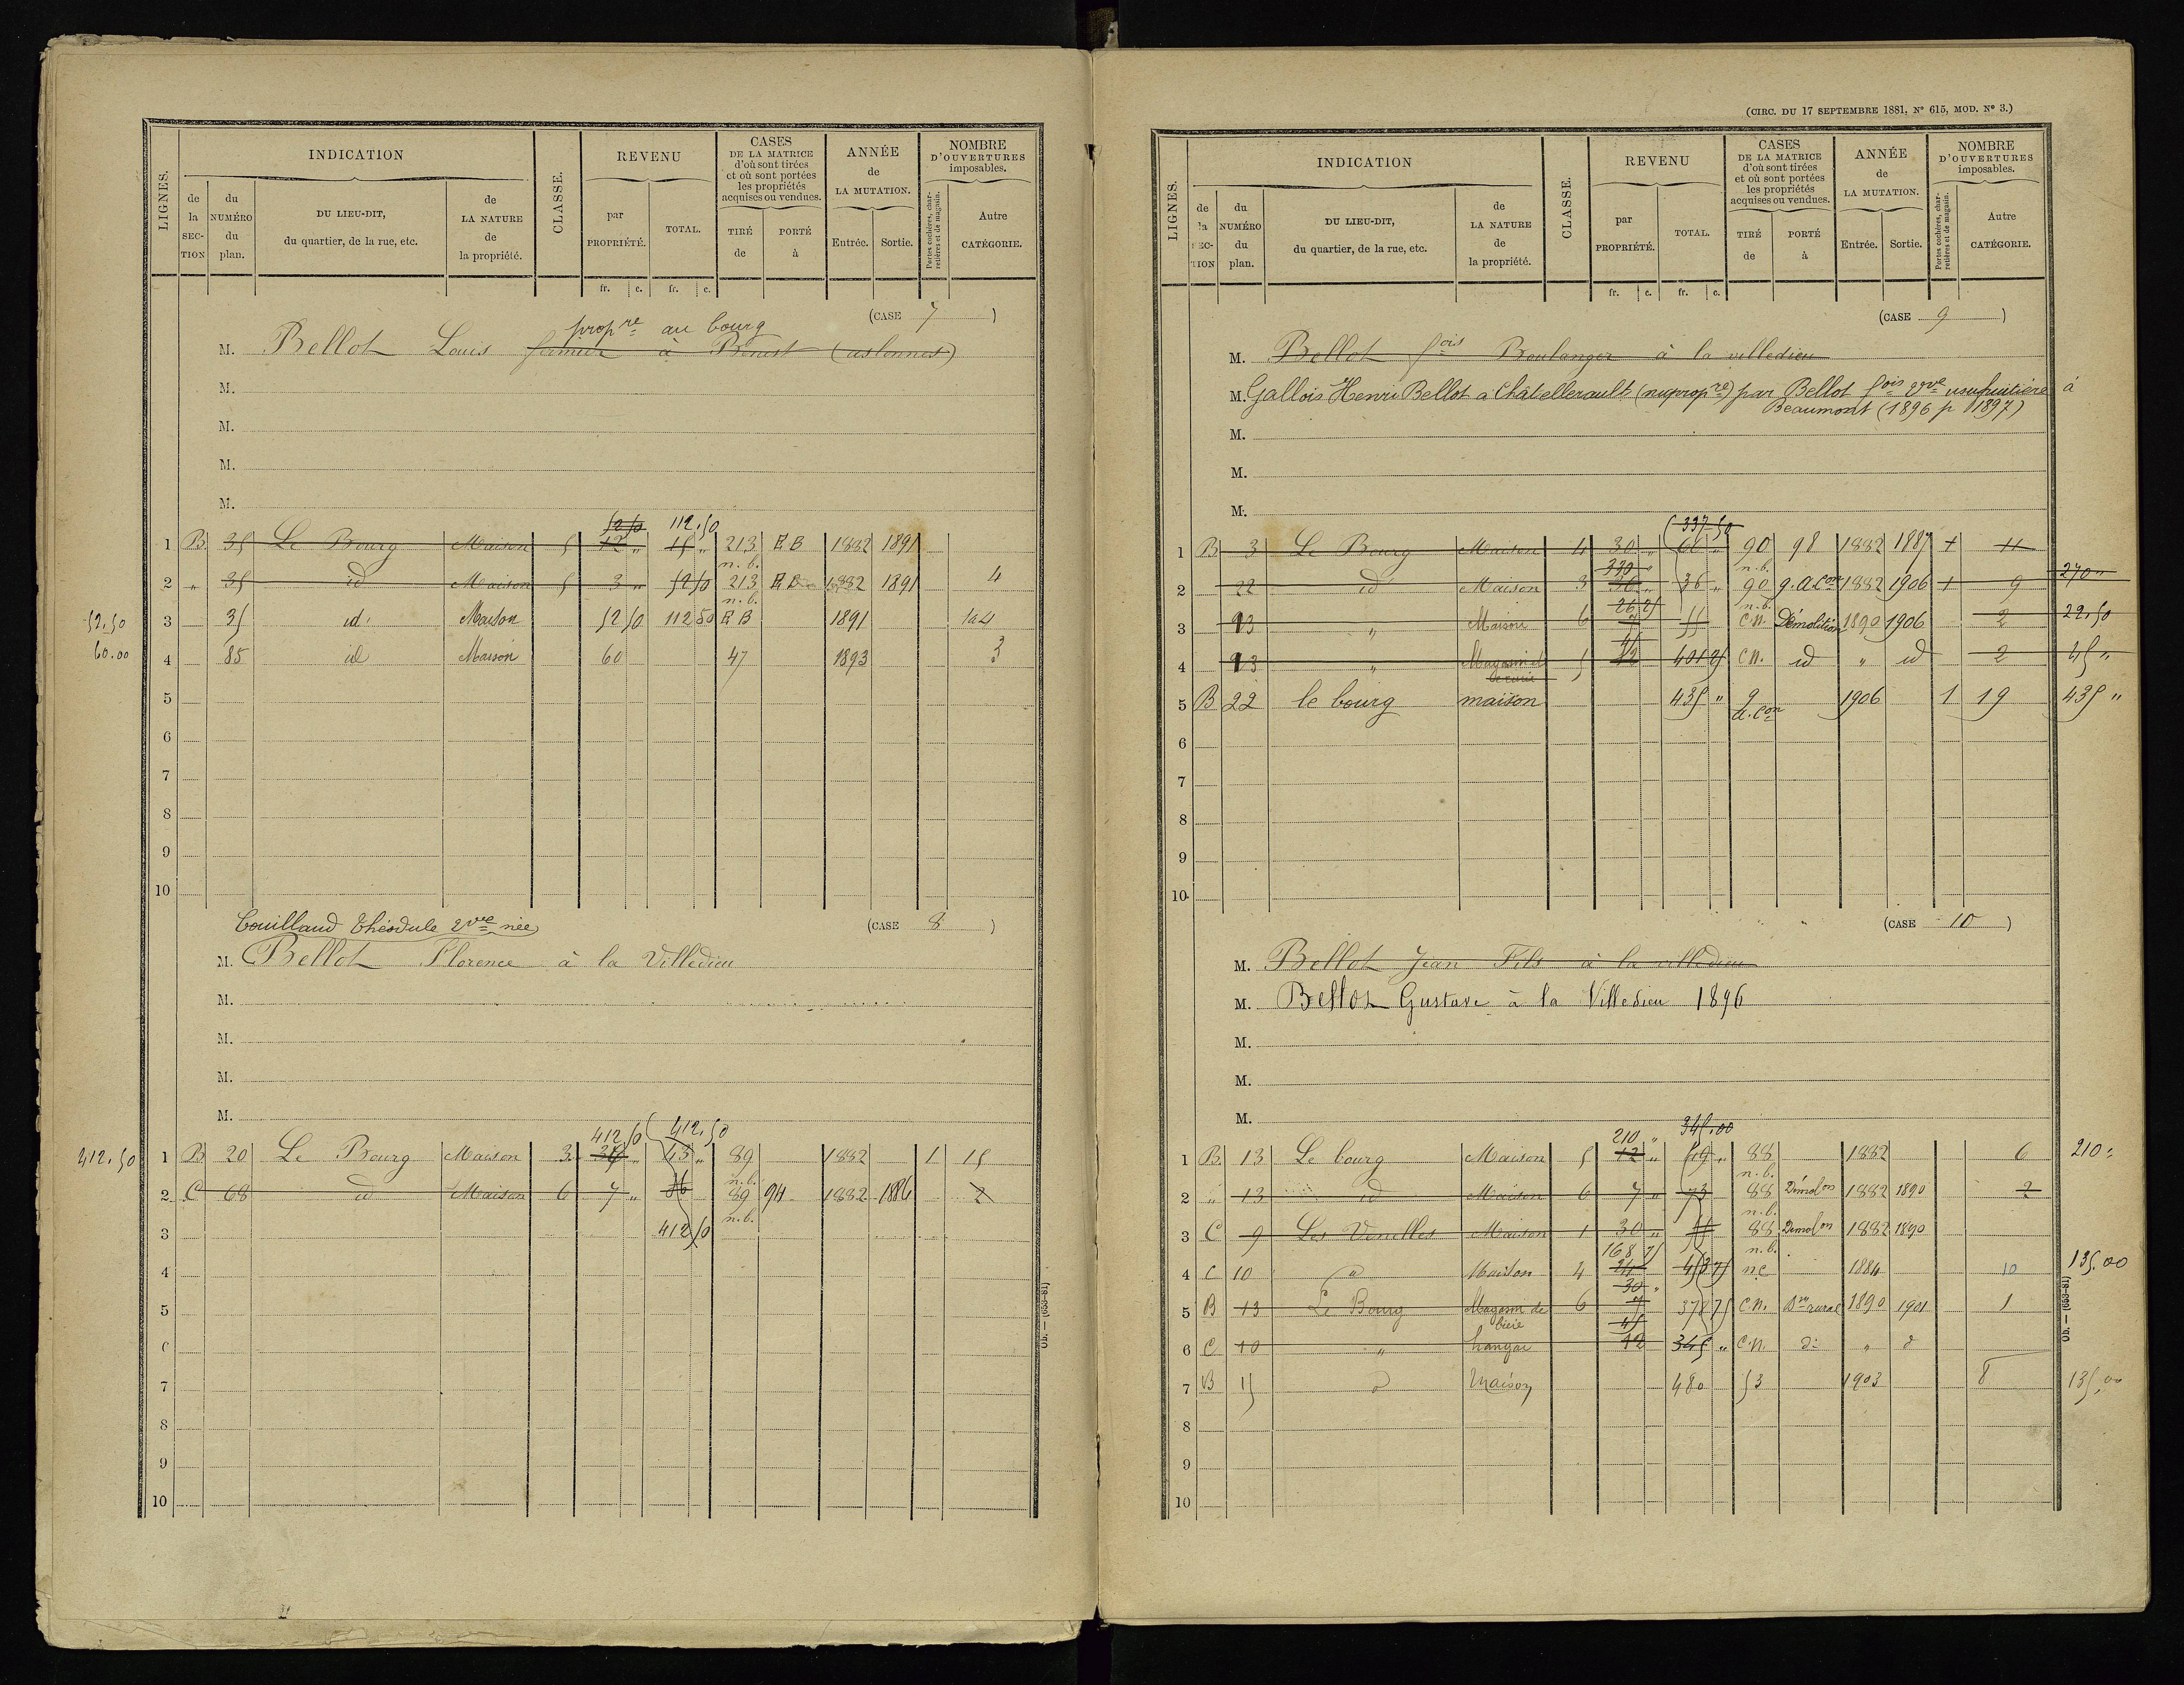 LIGNES.
INDICATION
de la SECTION
du NUMÉRO du plan.
DU LIEU-DIT, du quartier, de la rue, etc.
de LA NATURE de la propriété.
CLASSE.
REVENU
par PROPRIÉTÉ.
TOTAL.
fr. c. fr. c.
CASES DE LA MATRICE d'où sont tirées et où sont portées les propriétés acquises ou vendues.
TIRÉ de
PORTÉ à
ANNÉE de LA MUTATION.
Entrée. Sortie.
NOMBRE D'OUVERTURES imposables.
Portes cochères, charretières et de magasin.
Autre CATÉGORIE.
(CASE 7)
propre au bourg
M. Bellot Louis fermier à (aslonnes)
M.
M.
M.
M.
52 50 112.50
1 B 35 Le Bourg Maison 5 12 " 15 " 213 EB 1882 1891
n.b.
2 " 35 id Maison 5 3 " 52 50 213 EB 1882 1891 4
n.b.
52.50 3 35 id. Maison 52 50 112 50 EB 1891
60.00 4 85 id Maison 60 47 1893 3
5
6
7
8
9
10
(CASE 8)
Couillaud Théodule vve née
M. Bellot Florence à la Villedieu
M.
M.
M.
M.
412 50 412.50
412.50 1 B 20 Le Bourg Maison 3 36 " 43 " 89 1882 1 15
n.b.
2 C 68 id Maison 6 7 " 36 89 94 1882 1886 2
n.b.
3 412 50
4
5
6
7
8
9
10
Ob. — (653-81)
(CIRC. DU 17 SEPTEMBRE 1881, N° 615, MOD. N° 3.)
LIGNES.
INDICATION
de la SECTION
du NUMÉRO du plan.
DU LIEU-DIT, du quartier, de la rue, etc.
de LA NATURE de la propriété.
CLASSE.
REVENU
par PROPRIÉTÉ.
TOTAL.
fr. c. fr. c.
CASES DE LA MATRICE d'où sont tirées et où sont portées les propriétés acquises ou vendues.
TIRÉ de
PORTÉ à
ANNÉE de LA MUTATION.
Entrée. Sortie.
NOMBRE D'OUVERTURES imposables.
Portes cochères, charretières et de magasin.
Autre CATÉGORIE.
(CASE 9)
M. Bellot fois Boulanger à la villedieu
M. Gallois Henri Bellot à Châtellerault (nuprop re) par Bellot fois vve usufruitière à
Beaumont (1896 p 1897)
M.
M.
M.
337 50
1 B 3 Le Bourg Maison 4 30 " 66 " 90 98 1882 1887 1 11
330 " n.b.
2 22 id Maison 3 36 " 36 " 90 9.a.con 1882 1906 1 9 270 "
26 25 n.b.
3 13 " Maison 6 7 55 C.N. Démolition 1890 1906 2 22.50
45
4 13 " Magasin et écurie 5 12 401 25 C.N. id " id 2 45 "
5 B 22 le bourg maison 435 " 9 a.con 1906 1 19 435 "
6
7
8
9
10
(CASE 10)
M. Bellot Jean Fils à la villedieu
M. Bellot Gustave à la Villedieu 1896
M.
M.
M.
210 " 345.00
1 B 13 Le bourg Maison 5 12 " 49 " 88 1882 6 210 "
n.b.
2 " 13 id Maison 6 7 " 73 88 Démolon 1882 1890 2
n.b.
3 C 9 Les Venelles Maison 1 30 " 88 Démolon 1882 1890
168 75 n.b.
4 C 10 " Maison 4 24 453 75 nc 1884 10 135.00
30 "
5 B 13 Le Bourg Magasin de bière 6 7 378 75 C.N. Bm rural 1890 1901 1
45
6 C 10 " hangar 12 345 " C.N. d: " d
7 B 15 d Maison 480 53 1903 8 135.00
8
9
10
Ob. — (653-81)